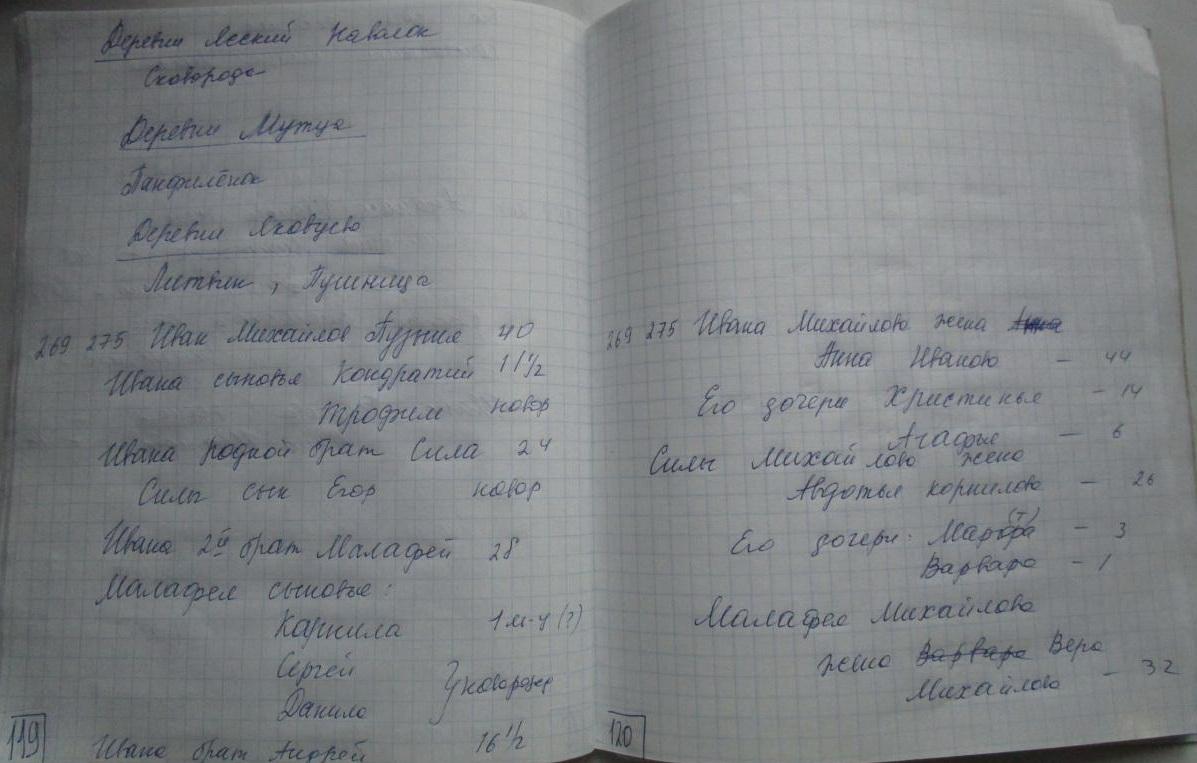 Деревни Леский Наволок
Сковорода
Деревни Мутца
Панфилёнок
Деревни Яковцево
Литвин, Пушница
269 275 Иван Михайлов Пузжин 40
Ивана сыновья Кондратий 11 1/2
Трофим новор
Ивана родной брат Сила 24
Силы сын Егор новор
Ивана 2й брат Малафей 28
Малафея сыновья:
Карнила 1 м-ц (?)
Сергей
Данило } новорожд
Ивана брат Андрей 16 1/2
119
269 275 Ивана Михайлова жена Анна
Анна Иваново - 44
Его дочери Христинья - 14
Агафья - 6
Силы Михайлова жена
Авдотья корнилова - 26
Его дочери: Марфа (т) - 3
Варвара - 1
Малафея Михайлова
жена Варвара Вера
Михайлова - 32
120